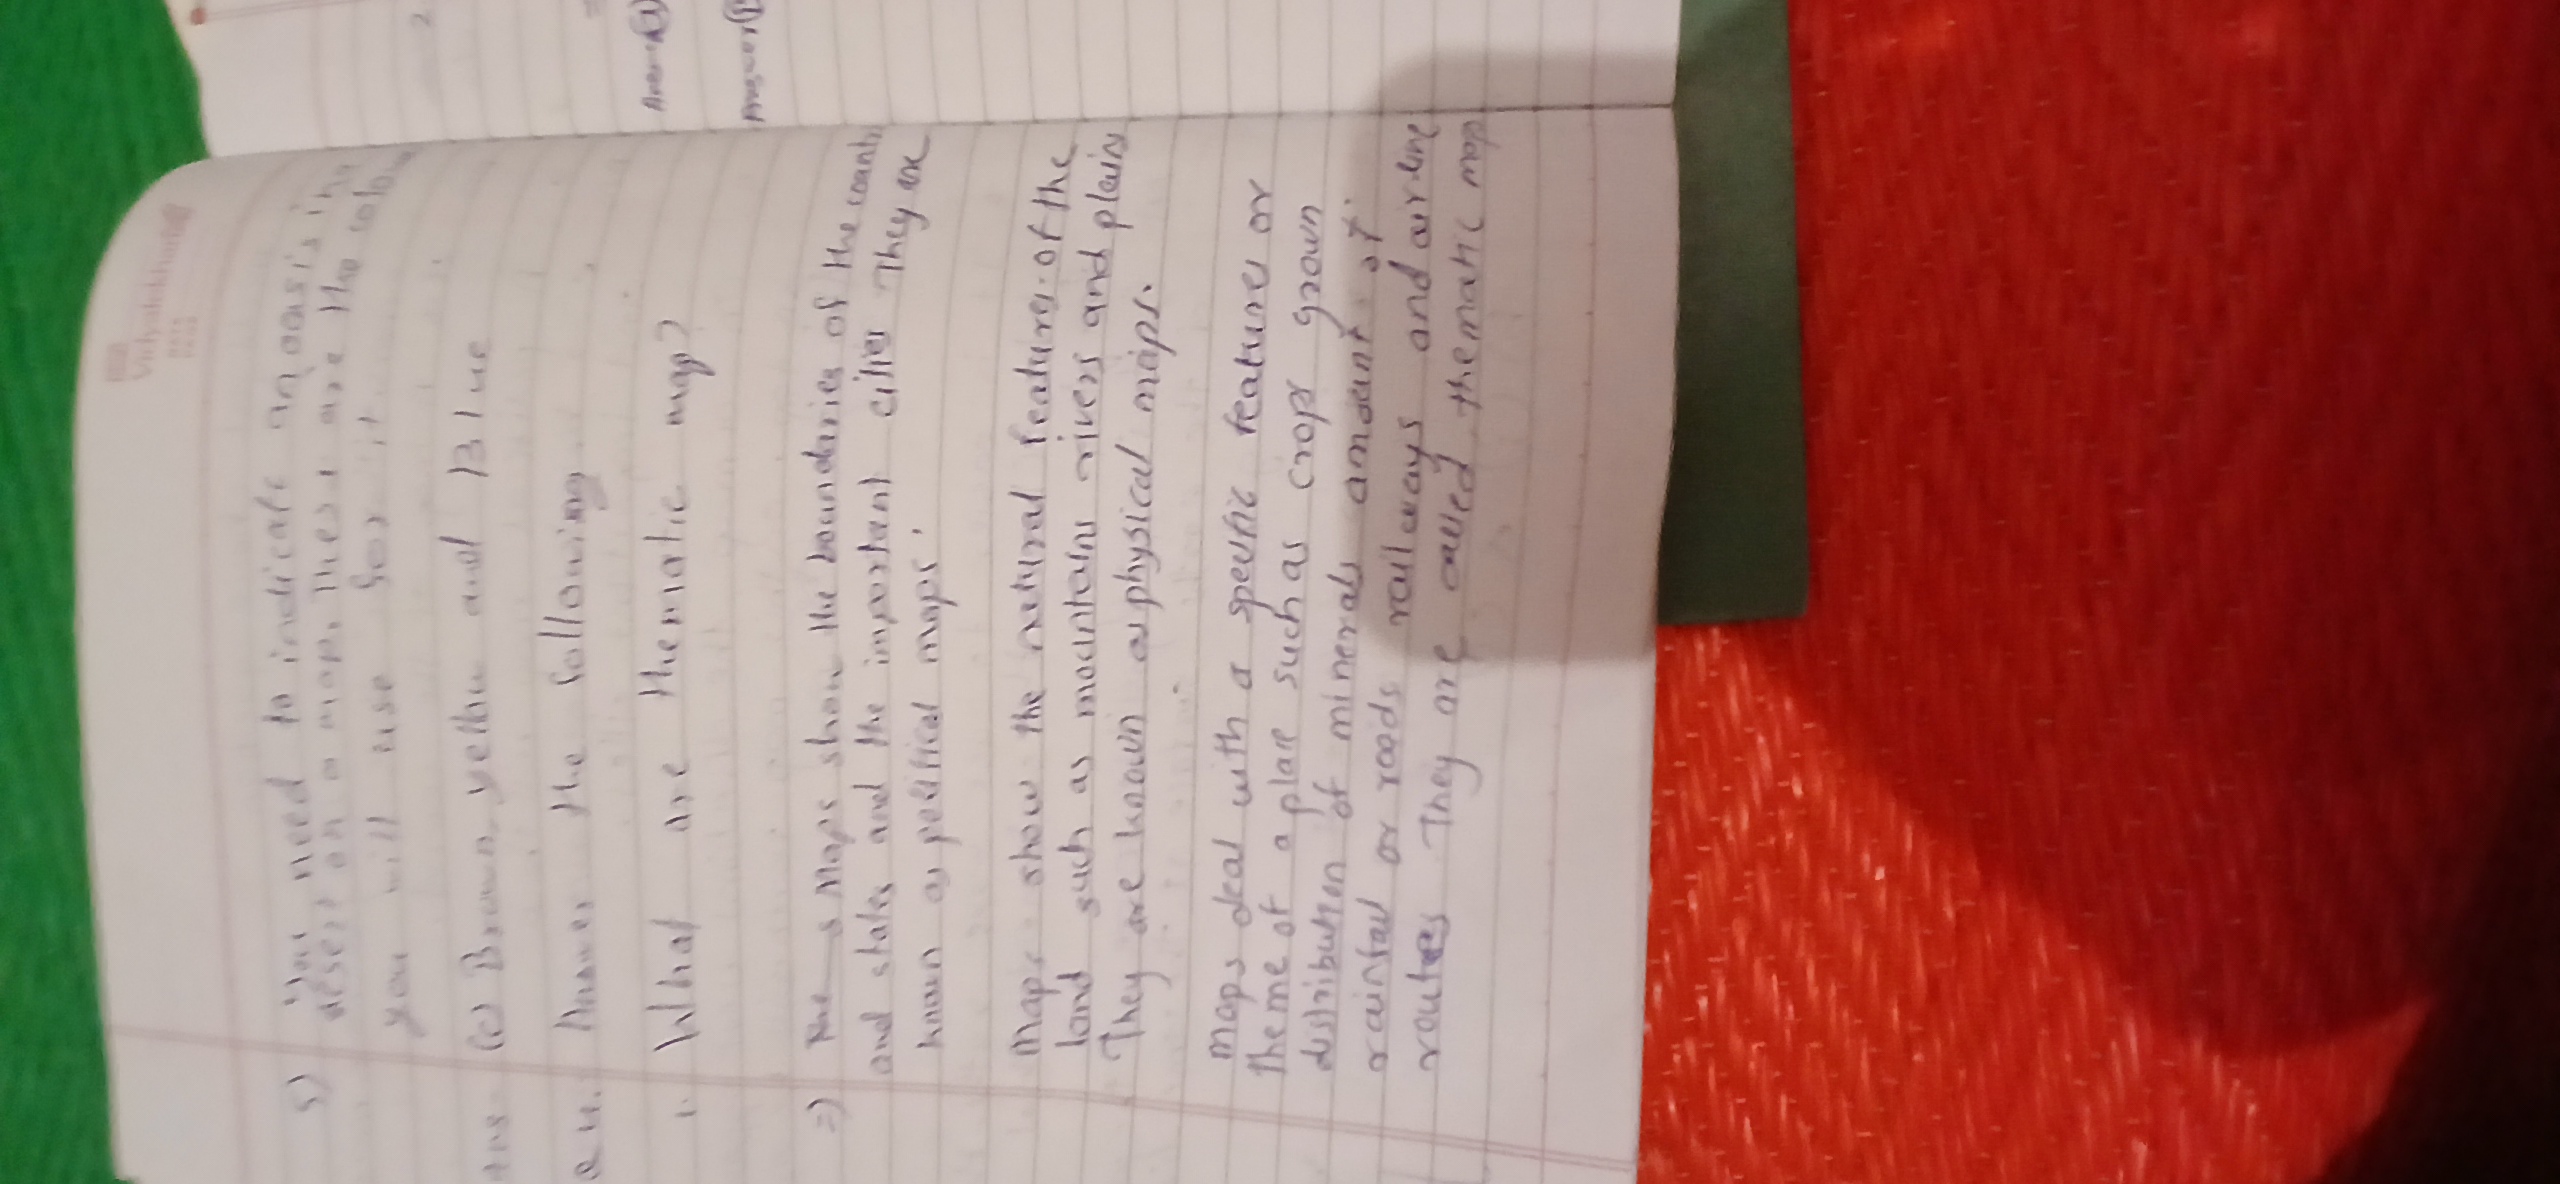 Vidyalekhan
5) You need to indicate an oasis in a
desert on a map. These are the colo
you will use for it
Ans (c) Brown, yellow and Blue
Q4. Answer the following
1. What are thematic map?
=) The s Maps show the boundaries of the country
and states and the important cities They are
known as political maps.
Maps show the natural features of the
land such as mountains rivers and plains
They are known as physical maps.
Maps deal with a specific features or
theme of a place such as crops grown
distribution of minerals amount of
rainfal or roads railways and airline
routes They are called thematic map
2
Answer